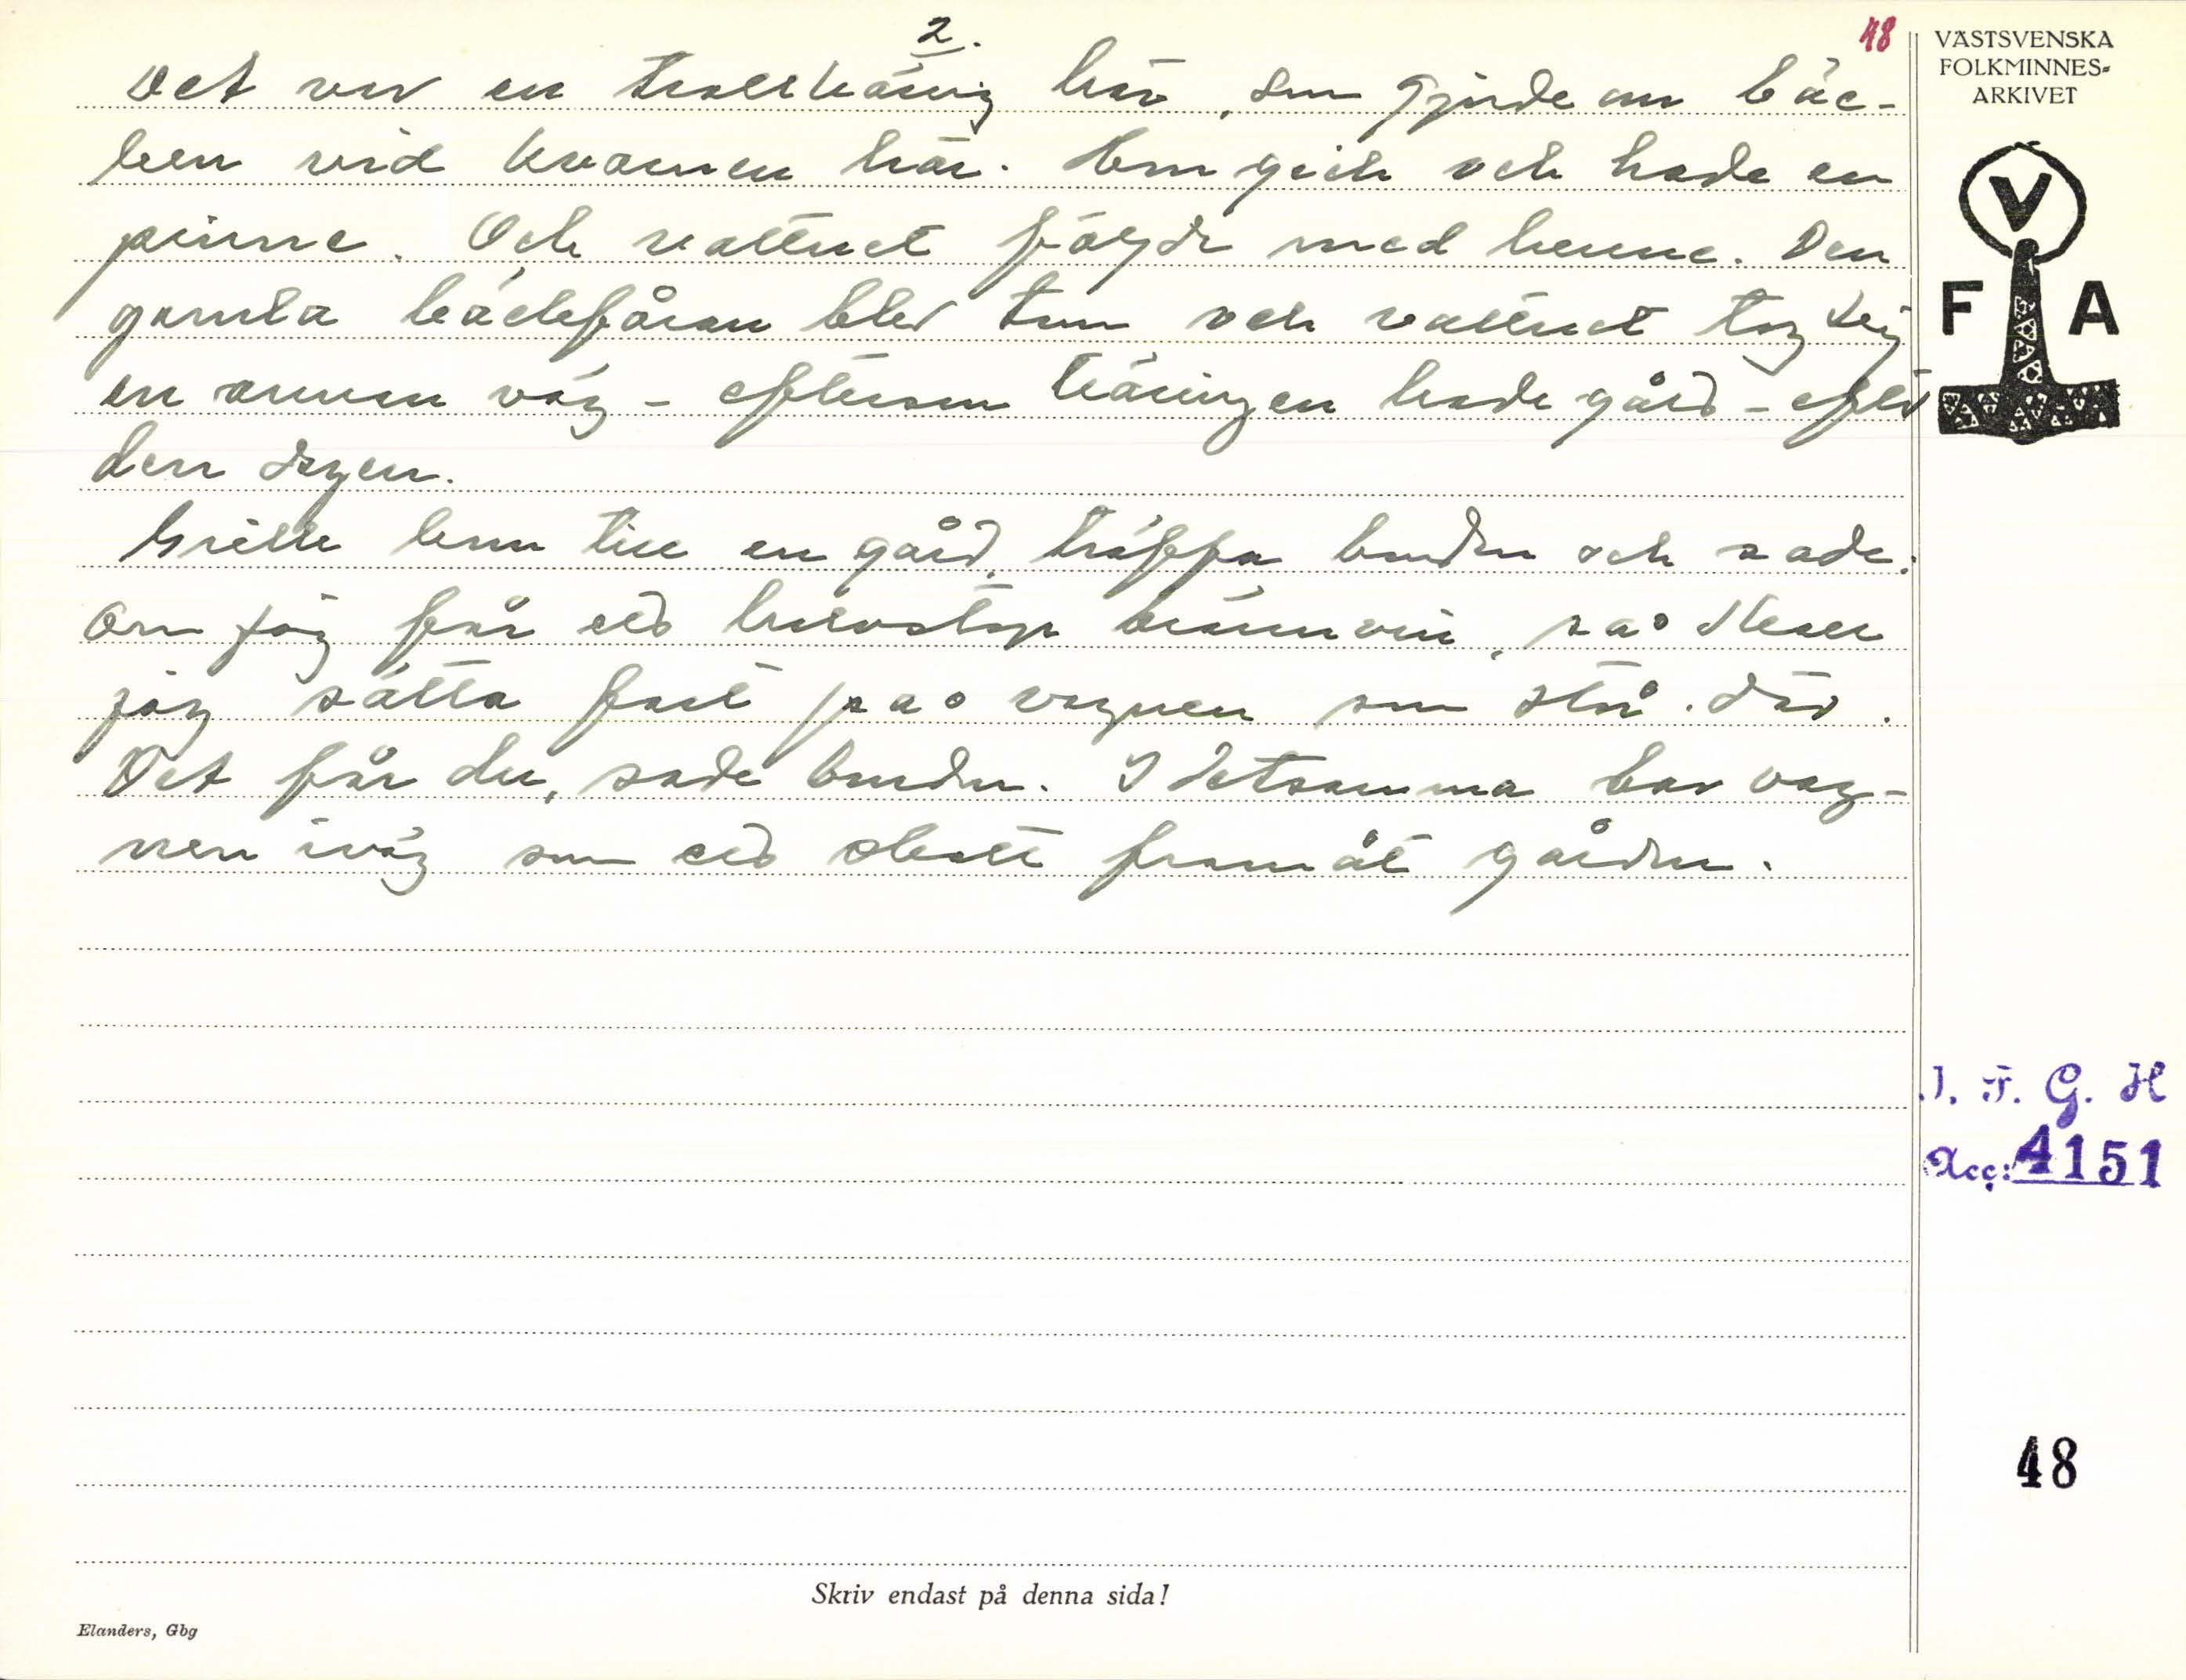 2.
48
Det var en trollkäring här, som gjorde om bäc-
ken vid kvarnen här. Hon gick och hade en
pinne. Och vattnet följde med henne. Den
gamla bäckfåran blev tom och vattnet tog sig
en annan väg - eftersom käringen hade gård - efter
den dagen.
kom till en gård, träffa bonden och sade:
Om jag får ett halvstop brännvin, så skall
jag sätta fart på vagnen som står där.
Det får du, sade bonden. I detsamma bar vag-
nen iväg som ett skott framåt gården.
VÄSTSVENSKA
FOLKMINNES-
ARKIVET
V
F A
I. F. G. H
Acc: 4151
48
Skriv endast på denna sida!
Elanders, Gbg